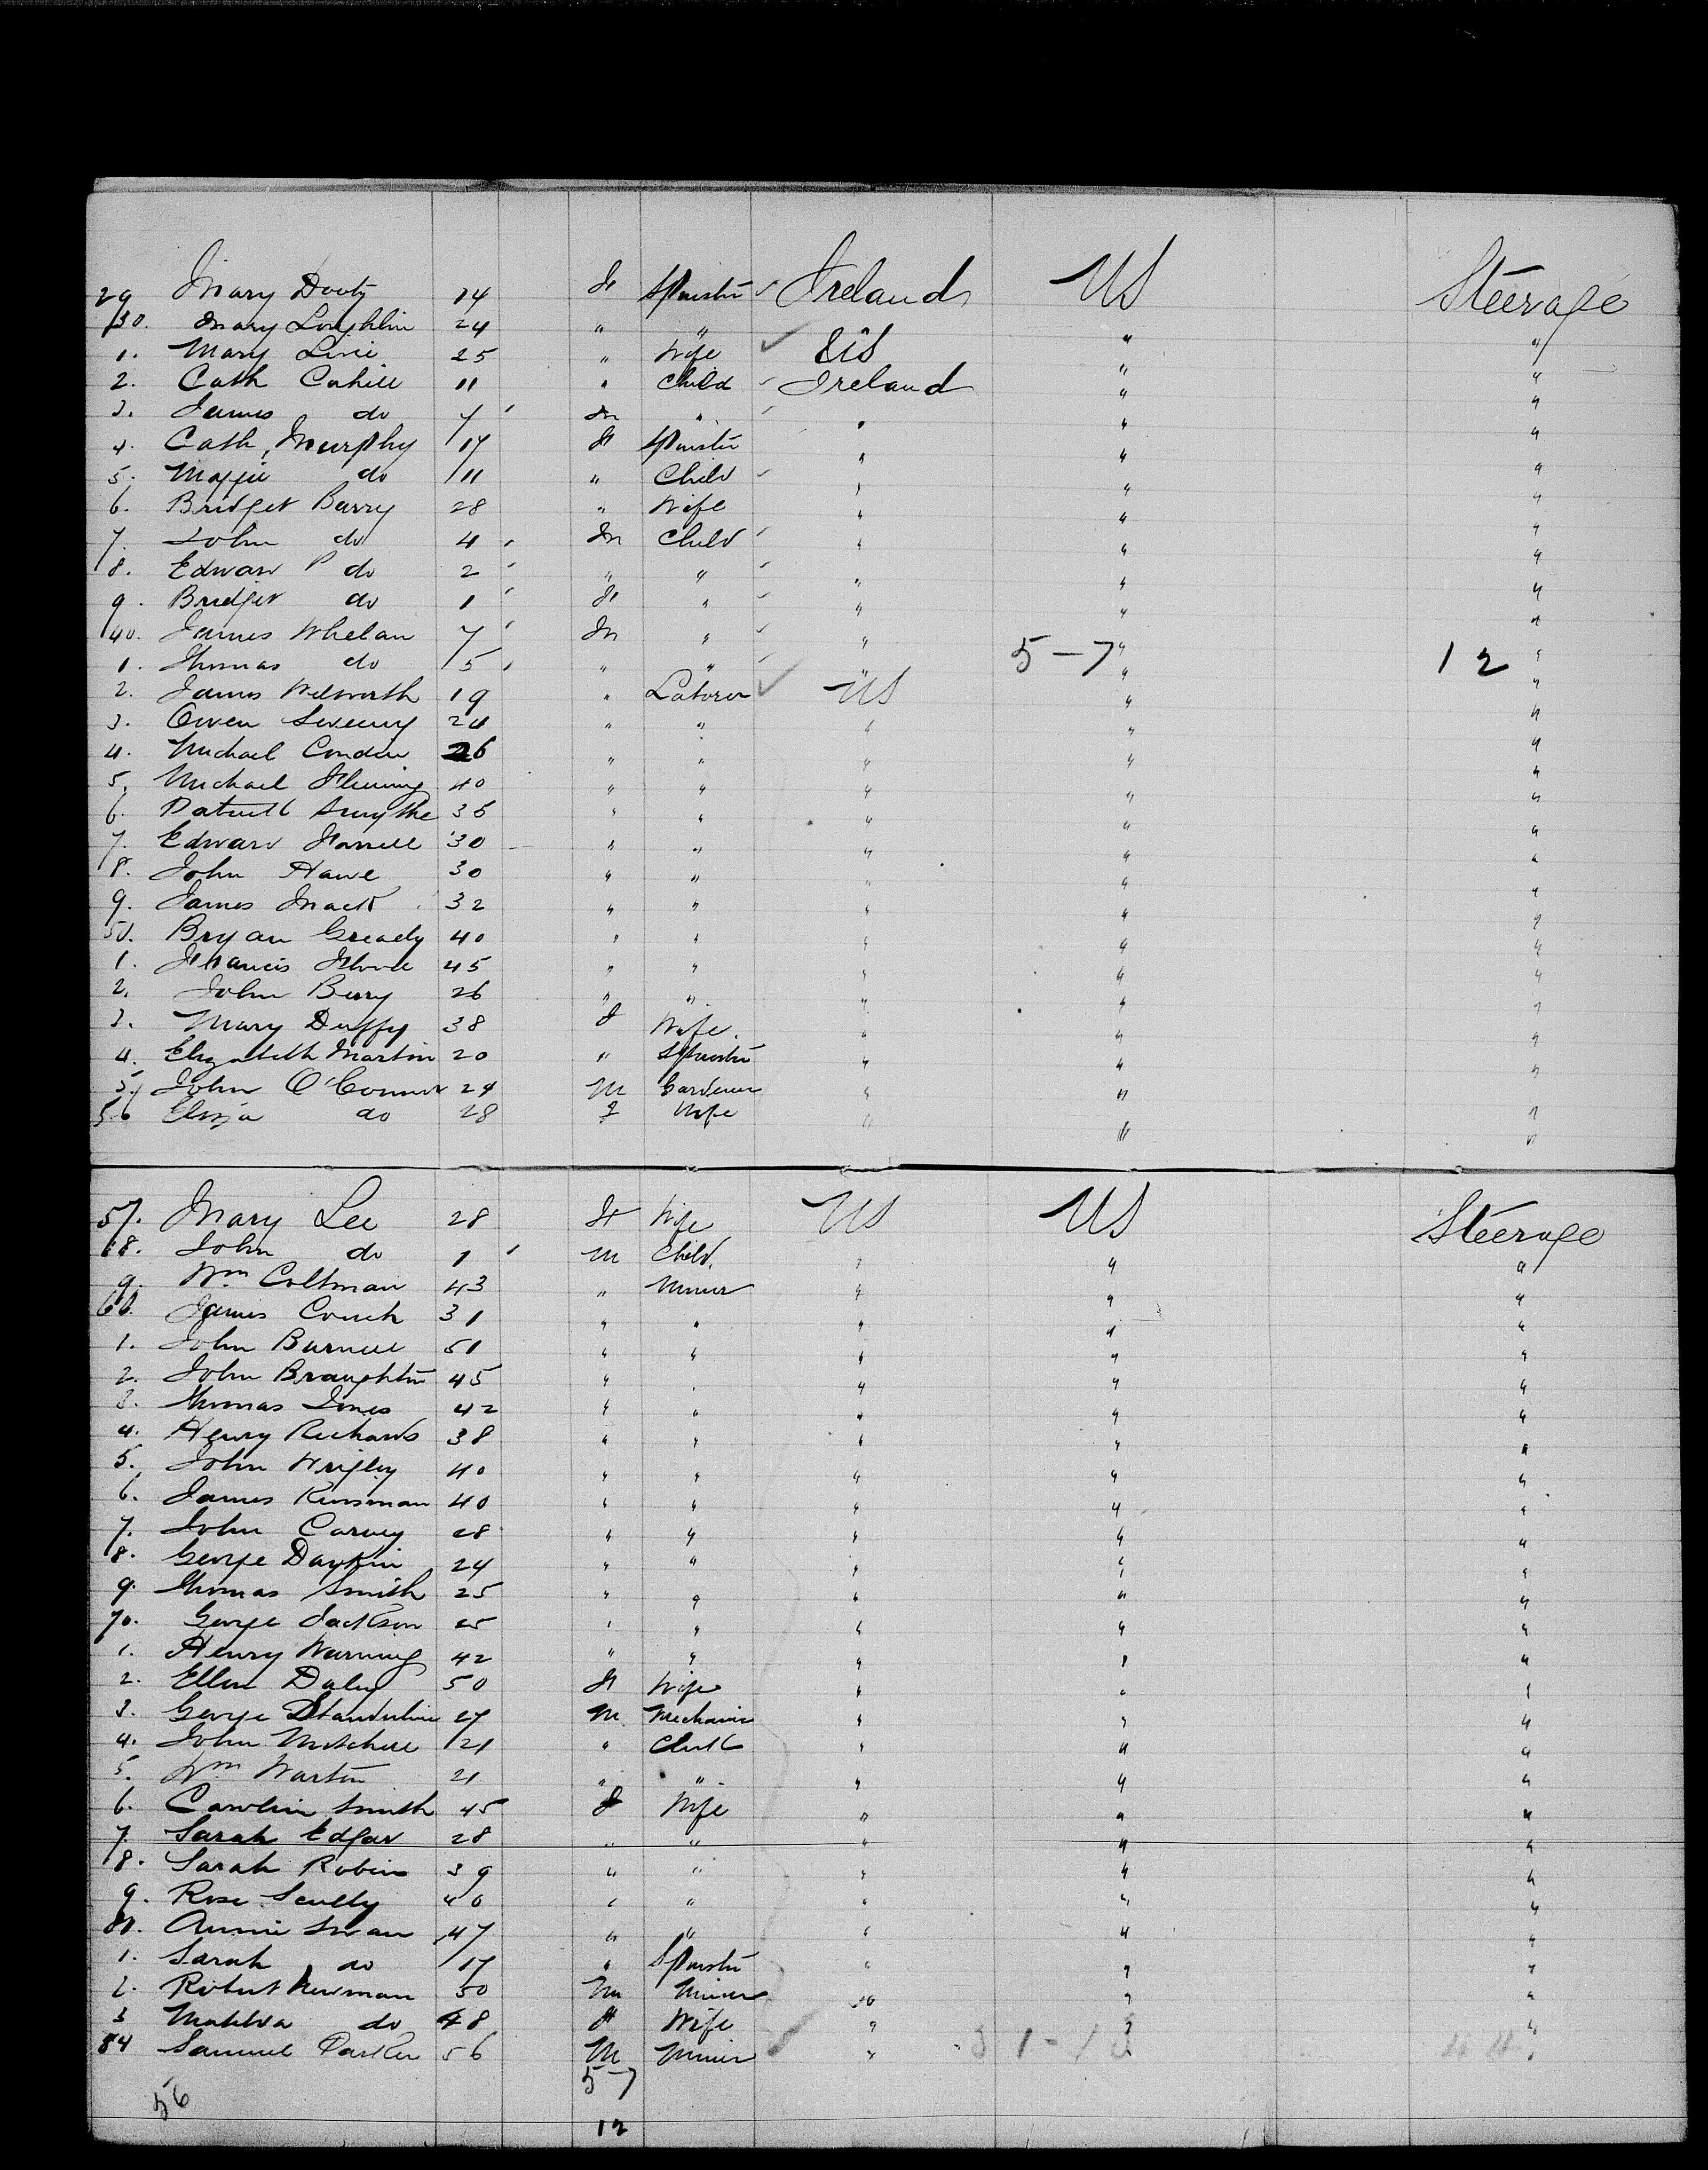 29 Mary Dooty 14 F Spinster Ireland US Steerage
30. Mary Loughlin 24 " " " "
1. Mary Line 25 " Wife US " "
2. Cath Cahill 11 " Child Ireland " "
3. James do 7 M " " " "
4. Cath. Murphy 17 F Spinster " " "
5. Maggie do 11 " Child " " "
6. Bridget Barry 28 " Wife " " "
7. John do 4 M Child " " "
8. Edward P do 2 " " " " "
9. Bridget do 1 F " " " "
40. James Whelan 7 M " " " "
1. Thomas do 5 " " " 5-7 " 12 "
2. James Welsworth 19 " Laborer US " "
3. Owen Sweeny 24 " " " " "
4. Michael Condin 26 " " " " "
5. Michael Fleming 40 " " " " "
6. Patrick Smythe 35 " " " " "
7. Edward Farrell 30 " " " " "
8. John Hawe 30 " " " " "
9. James Mack 32 " " " " "
50. Bryan Gready 40 " " " " "
1. Francis 45 " " " " "
2. John Berry 26 " " " " "
3. Mary Duffy 38 F Wife. " " "
4. Elizabeth Martin 20 " Spinster " " "
5. John O'Connor 24 M Gardener " " "
56 Eliza do 28 F Wife " " "
57. Mary Lee 28 F Wife US US Steerage
58. John do 1 M Child. " " "
9. Wm Coltman 43 " Miner " " "
60. James Couch 31 " " " " "
1. John Burnell 51 " " " " "
2. John Braughton 45 " " " " "
3. Thomas Jones 42 " " " " "
4. Henry Richards 38 " " " " "
5. John Wrigley 40 " " " " "
6. James Kinsman 40 " " " " "
7. John Carvey 28 " " " " "
8. George Daykin 24 " " " " "
9. Thomas Smith 25 " " " " "
70. George Jackson 25 " " " " "
1. Henry Warning 42 " " " " "
2. Ellen Daley 50 F Wife " " "
3. George 27 M Mechanic " " "
4. John Mitchell 21 " Clerk " " "
5. Wm Warton 21 " " " " "
6. Caroline Smith 45 F Wife " " "
7. Sarah Edgar 28 " " " " "
8. Sarah Robins 39 " " " " "
9. Rose Scully 40 " " " " "
80. Annie Swan 47 " " " " "
1. Sarah do 17 " Spinster " " "
2. Robert Newman 50 M Miner " " "
3 Matilda do 48 F Wife " " "
84 Samuel Parker 56 M Miner " " "
56 5-7
12